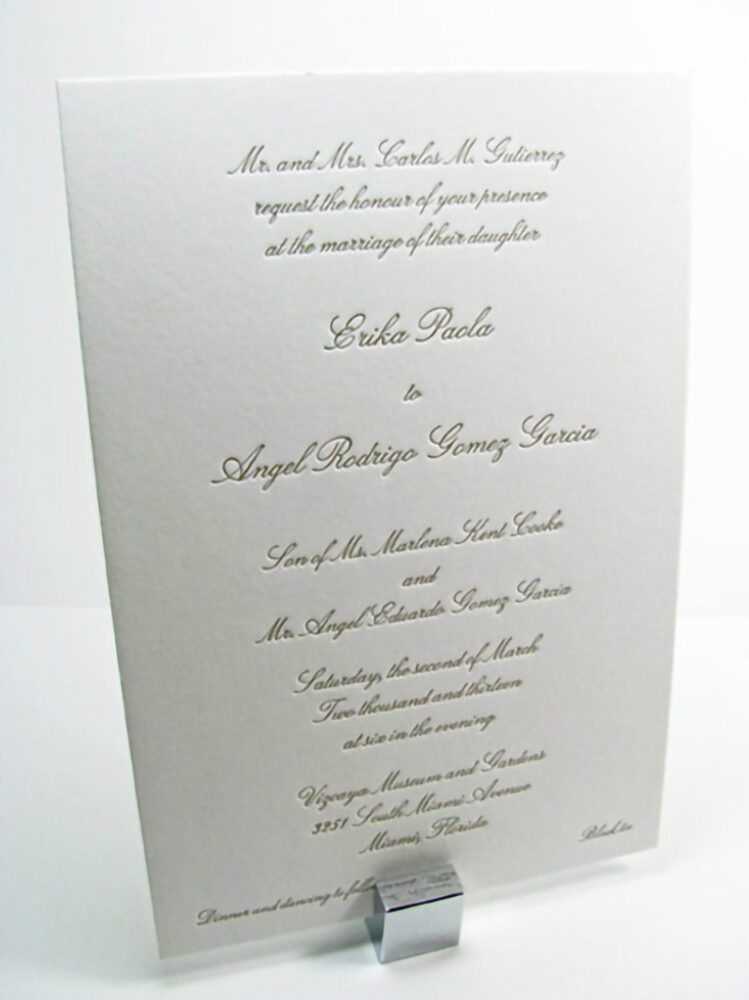 Mr. and Mrs. Carlos M. Gutierrez
request the honour of your presence
at the marriage of their daughter
Erika Paola
to
Angel Rodrigo Gomez Garcia
Son of Ms. Marlena Kent Cooke
and
Mr. Angel Eduardo Gomez Garcia
Saturday, the second of March
Two thousand and thirteen
at six in the evening
Vizcaya Museum and Gardens
3251 South Miami Avenue
Miami, Florida
Dinner and dancing to follow
Black tie